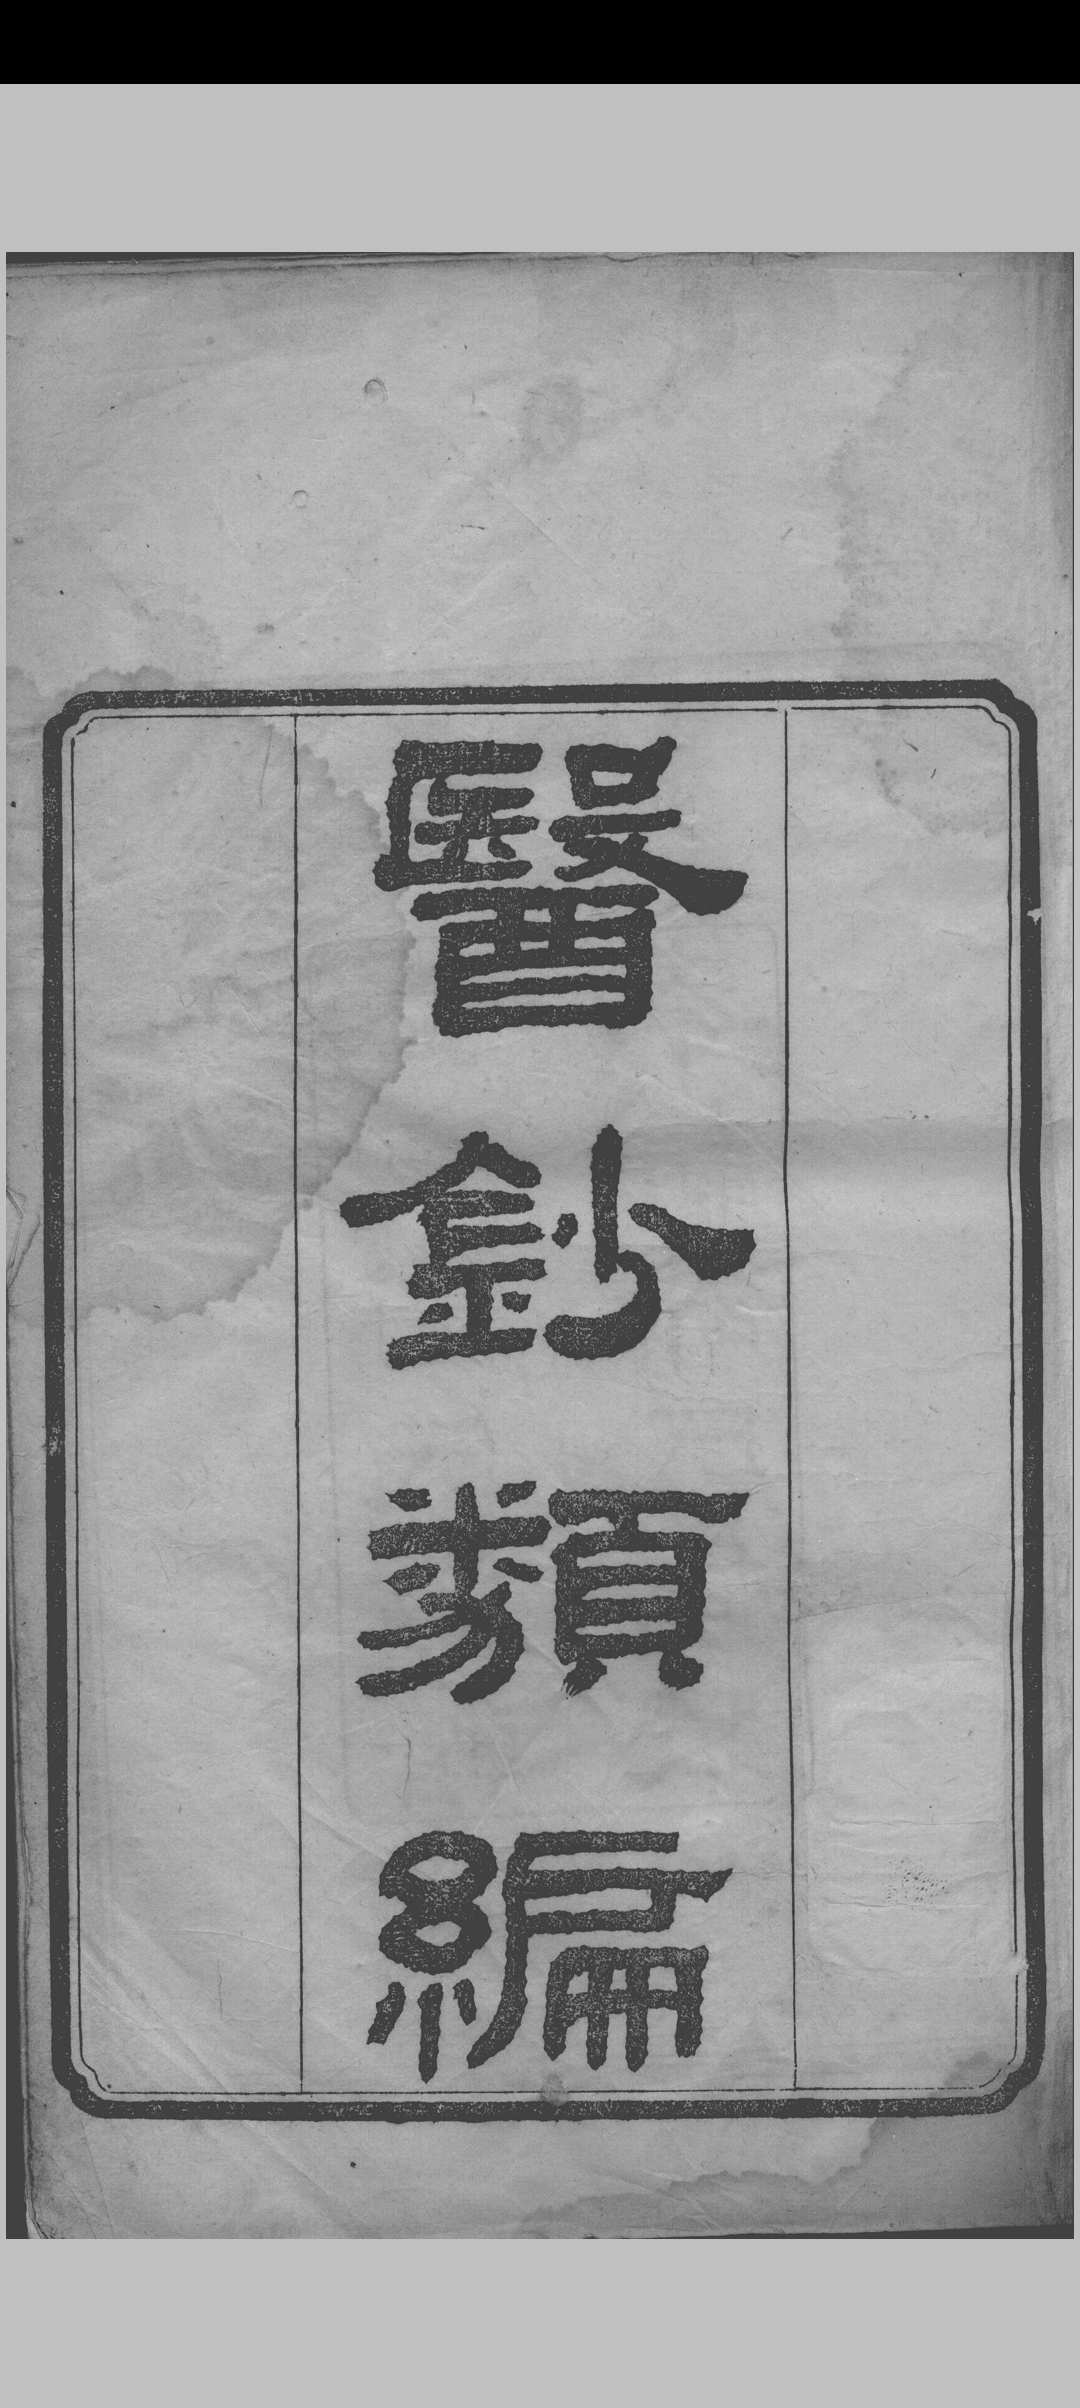 醫鈔類編